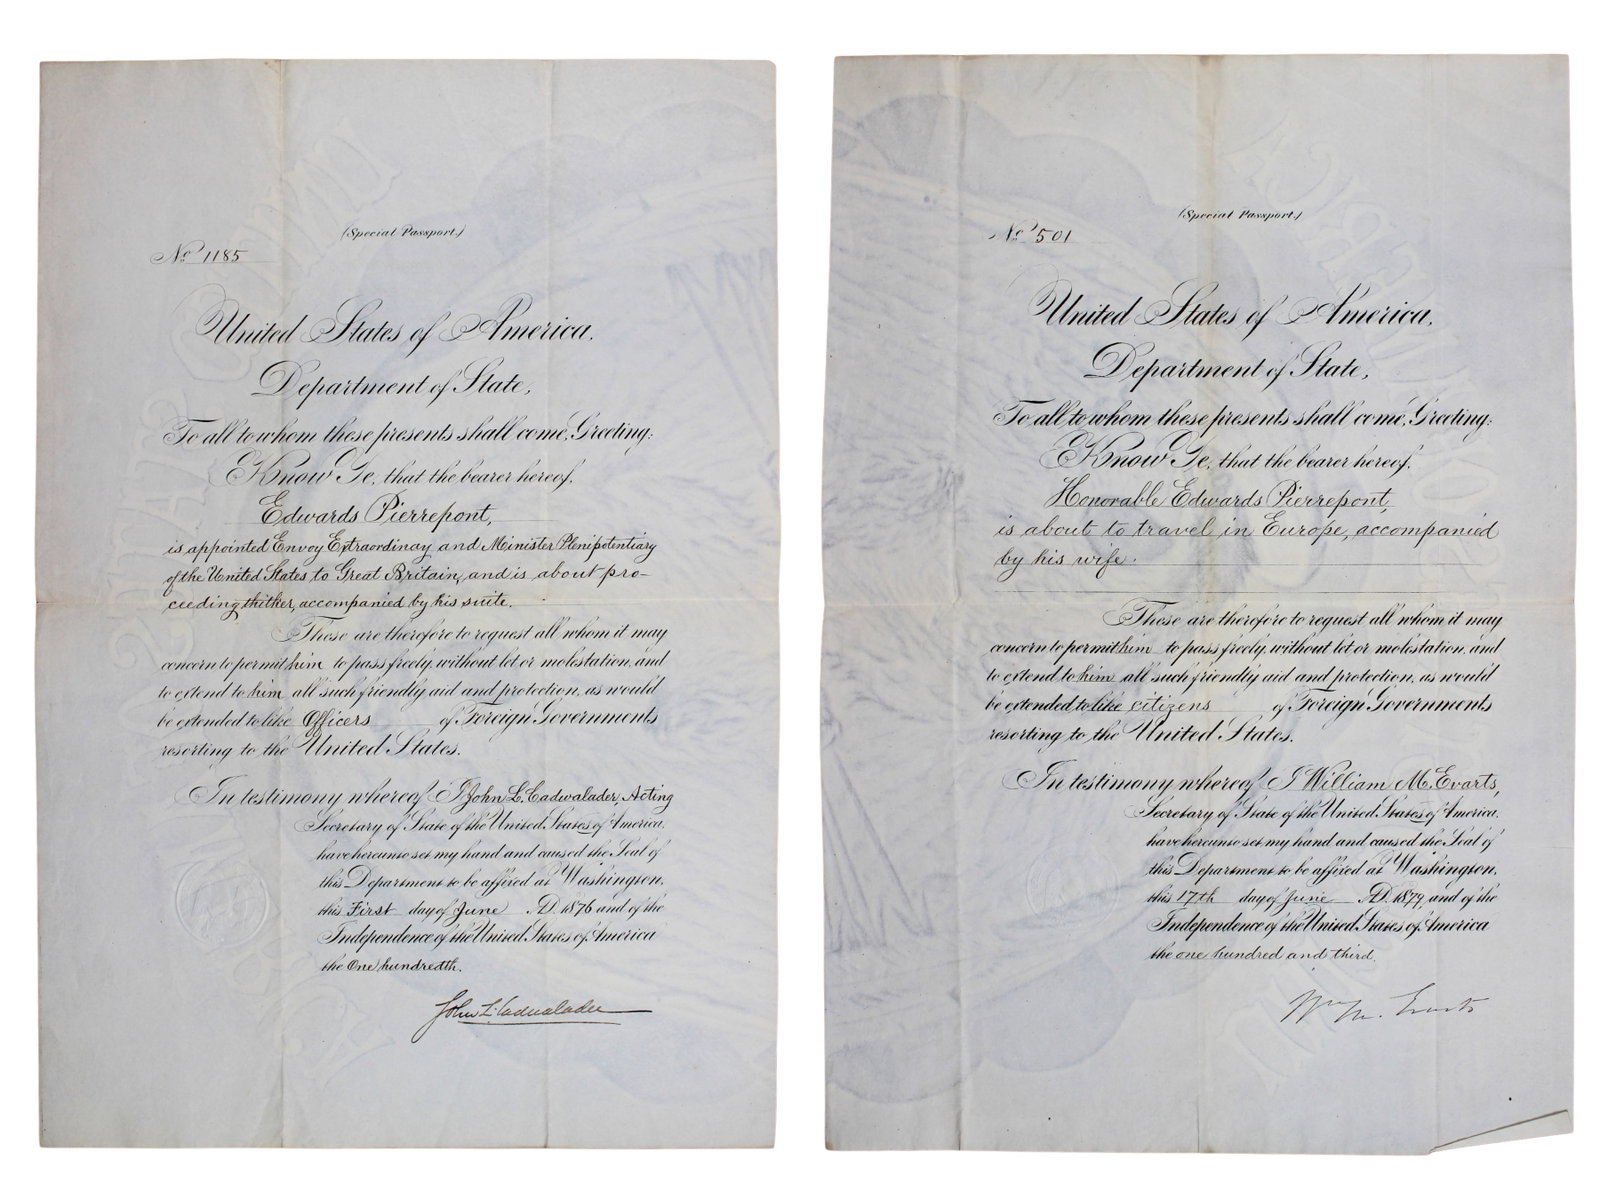 (Special Passport.)
No. 1185
United States of America.
Department of State,
To all to whom these presents shall come, Greeting:
Know Ye, that the bearer hereof,
Edwards Pierrepont,
is appointed Envoy Extraordinay and Minister Plenipotentiary
of the United States to Great Britain, and is about pro-
ceeding thither, accompanied by his suite.
These are therefore to request all whom it may
concern to permit him to pass freely, without let or molestation, and
to extend to him all such friendly aid and protection, as would
be extended to like Officers of Foreign Governments
resorting to the United States.
In testimony whereof I John L. Cadwalader, Acting
Secretary of State of the United States of America,
have hereunto set my hand and caused the Seal of
this Department to be affixed at Washington,
this First day of June A.D. 1876 and of the
Independence of the United States of America
the One hundredth.
John L. Cadwalader
(Special Passport.)
No. 501
United States of America,
Department of State,
To all to whom these presents shall come, Greeting:
Know Ye, that the bearer hereof,
Honorable Edwards Pierrepont,
is about to travel in Europe, accompanied
by his wife:
These are therefore to request all whom it may
concern to permit him to pass freely, without let or molestation, and
to extend to him all such friendly aid and protection, as would
be extended to like citizens of Foreign Governments
resorting to the United States.
In testimony whereof I William M. Evarts,
Secretary of State of the United States of America,
have hereunto set my hand and caused the Seal of
this Department to be affixed at Washington,
this 17th day of June A.D. 1879, and of the
Independence of the United States of America
the one hundred and third.
Wm M. Evarts